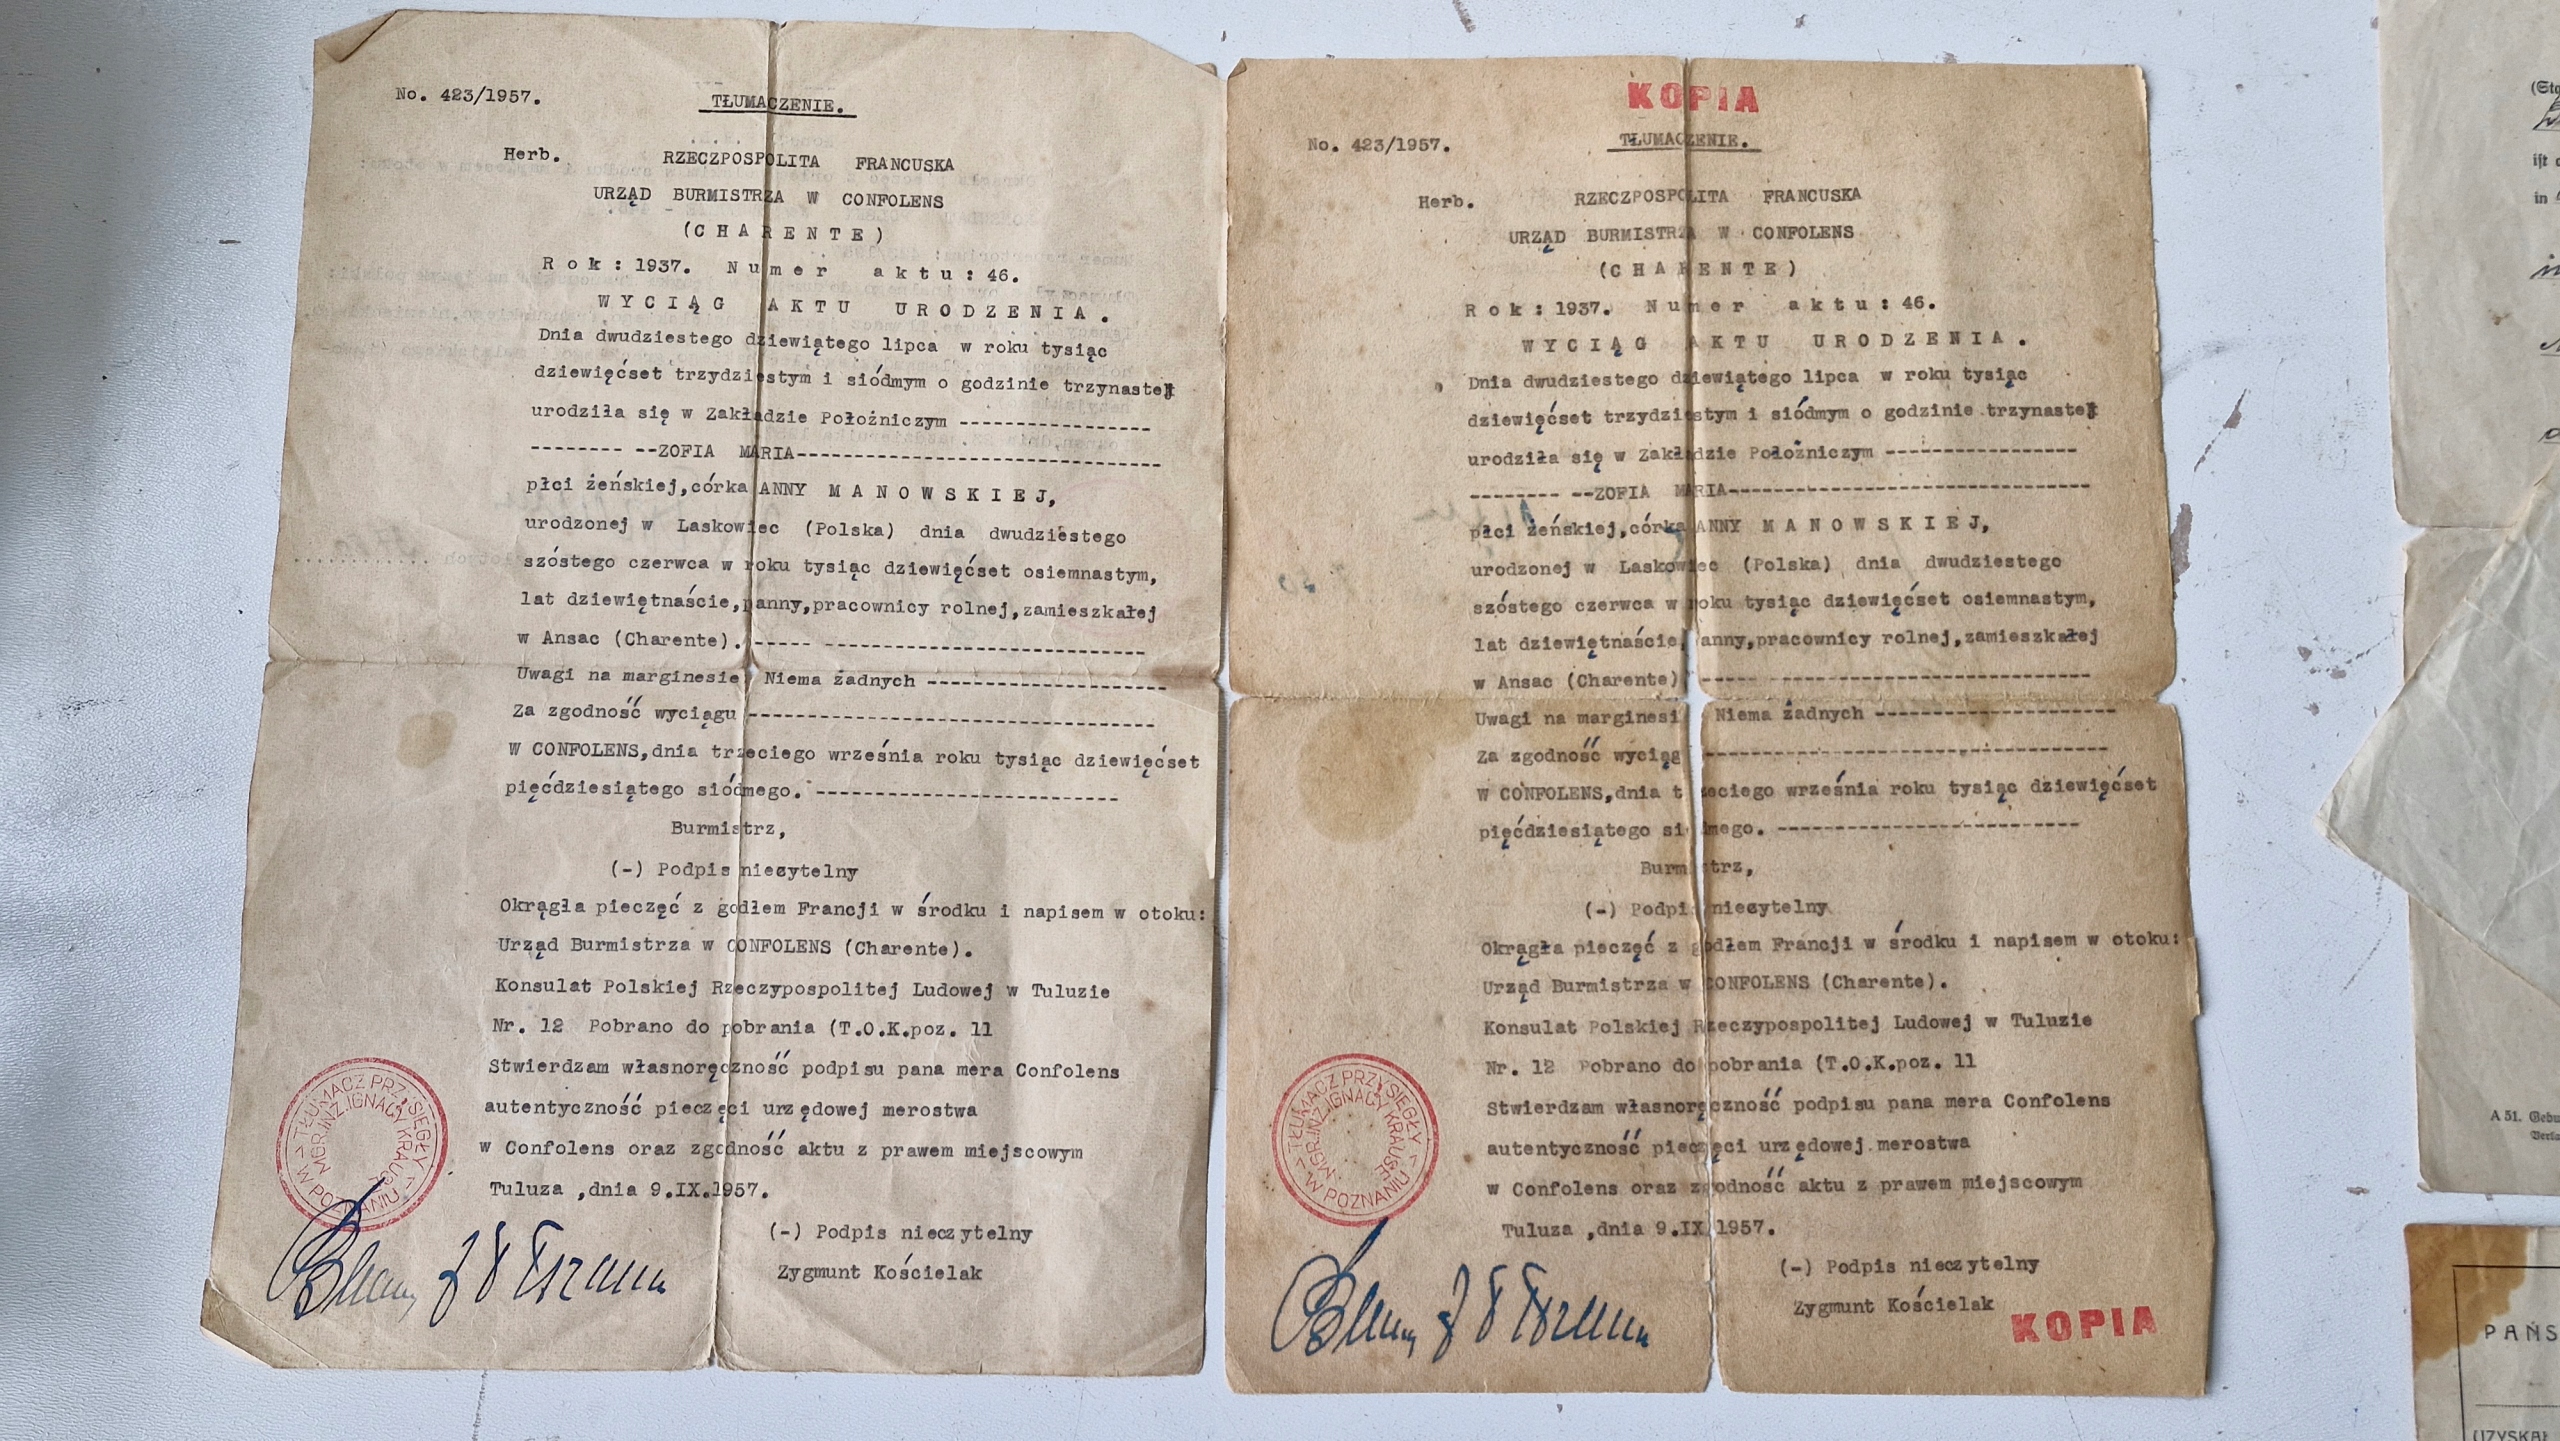 No. 423/1957.
TŁUMACZENIE.
Herb. RZECZPOSPOLITA FRANCUSKA
URZĄD BURMISTRZA W CONFOLENS
(CHARENTE)
Rok: 1937. Numer aktu: 46.
WYCIĄG AKTU URODZENIA.
Dnia dwudziestego dziewiątego lipca w roku tysiąc
dziewięćset trzydziestym i siódmym o godzinie trzynastej
urodziła się w Zakładzie Położniczym -----------------
-------- --ZOFIA MARIA--------------------------------
płci żeńskiej,córka ANNY MANOWSKIEJ,
urodzonej w Laskowiec (Polska) dnia dwudziestego
szóstego czerwca w roku tysiąc dziewięćset osiemnastym,
lat dziewiętnaście,panny,pracownicy rolnej,zamieszkałej
w Ansac (Charente). ----- ----------------------------
Uwagi na marginesie Niema żadnych ---------------------
Za zgodność wyciągu -----------------------------------
W CONFOLENS,dnia trzeciego września roku tysiąc dziewięćset
pięćdziesiątego siódmego. --------------------------
Burmistrz,
(-) Podpis nieczytelny
Okrągła pieczęć z godłem Francji w środku i napisem w otoku:
Urząd Burmistrza w CONFOLENS (Charente).
Konsulat Polskiej Rzeczypospolitej Ludowej w Tuluzie
Nr. 12 Pobrano do pobrania (T.O.K.poz. 11
Stwierdzam własnoręczność podpisu pana mera Confolens
autentyczność pieczęci urzędowej merostwa
w Confolens oraz zgodność aktu z prawem miejscowym
Tuluza ,dnia 9.IX.1957.
(-) Podpis nieczytelny
Zygmunt Kościelak
TŁUMACZ PRZYSIĘGŁY W POZNANIU
MGR.INŻ.IGNACY KRAUSE
KOPIA
No. 423/1957.
TŁUMACZENIE.
Herb. RZECZPOSPOLITA FRANCUSKA
URZĄD BURMISTRZA W CONFOLENS
(CHARENTE)
Rok: 1937. Numer aktu: 46.
WYCIĄG AKTU URODZENIA.
Dnia dwudziestego dziewiątego lipca w roku tysiąc
dziewięćset trzydziestym i siódmym o godzinie trzynastej
urodziła się w Zakładzie Położniczym -----------------
-------- --ZOFIA MARIA--------------------------------
płci żeńskiej,córka ANNY MANOWSKIEJ,
urodzonej w Laskowiec (Polska) dnia dwudziestego
szóstego czerwca w roku tysiąc dziewięćset osiemnastym,
lat dziewiętnaście, anny,pracownicy rolnej,zamieszkałej
w Ansac (Charente) ----- ----------------------------
Uwagi na marginesi Niema żadnych ---------------------
Za zgodność wyciąg -----------------------------------
W CONFOLENS,dnia t zeciego września roku tysiąc dziewięćset
pięćdziesiątego siódmego. --------------------------
Burmistrz,
(-) Podpis nieczytelny
Okrągła pieczęć z godłem Francji w środku i napisem w otoku:
Urząd Burmistrza w CONFOLENS (Charente).
Konsulat Polskiej Rzeczypospolitej Ludowej w Tuluzie
Nr. 12 Pobrano do pobrania (T.O.K.poz. 11
Stwierdzam własnoręczność podpisu pana mera Confolens
autentyczność pieczęci urzędowej merostwa
w Confolens oraz zgodność aktu z prawem miejscowym
Tuluza ,dnia 9.IX.1957.
(-) Podpis nieczytelny
Zygmunt Kościelak
KOPIA
TŁUMACZ PRZYSIĘGŁY W POZNANIU
MGR.INŻ.IGNACY KRAUSE
ist
in
A 51. Gebu
PAŃS
UZYSKAŁ